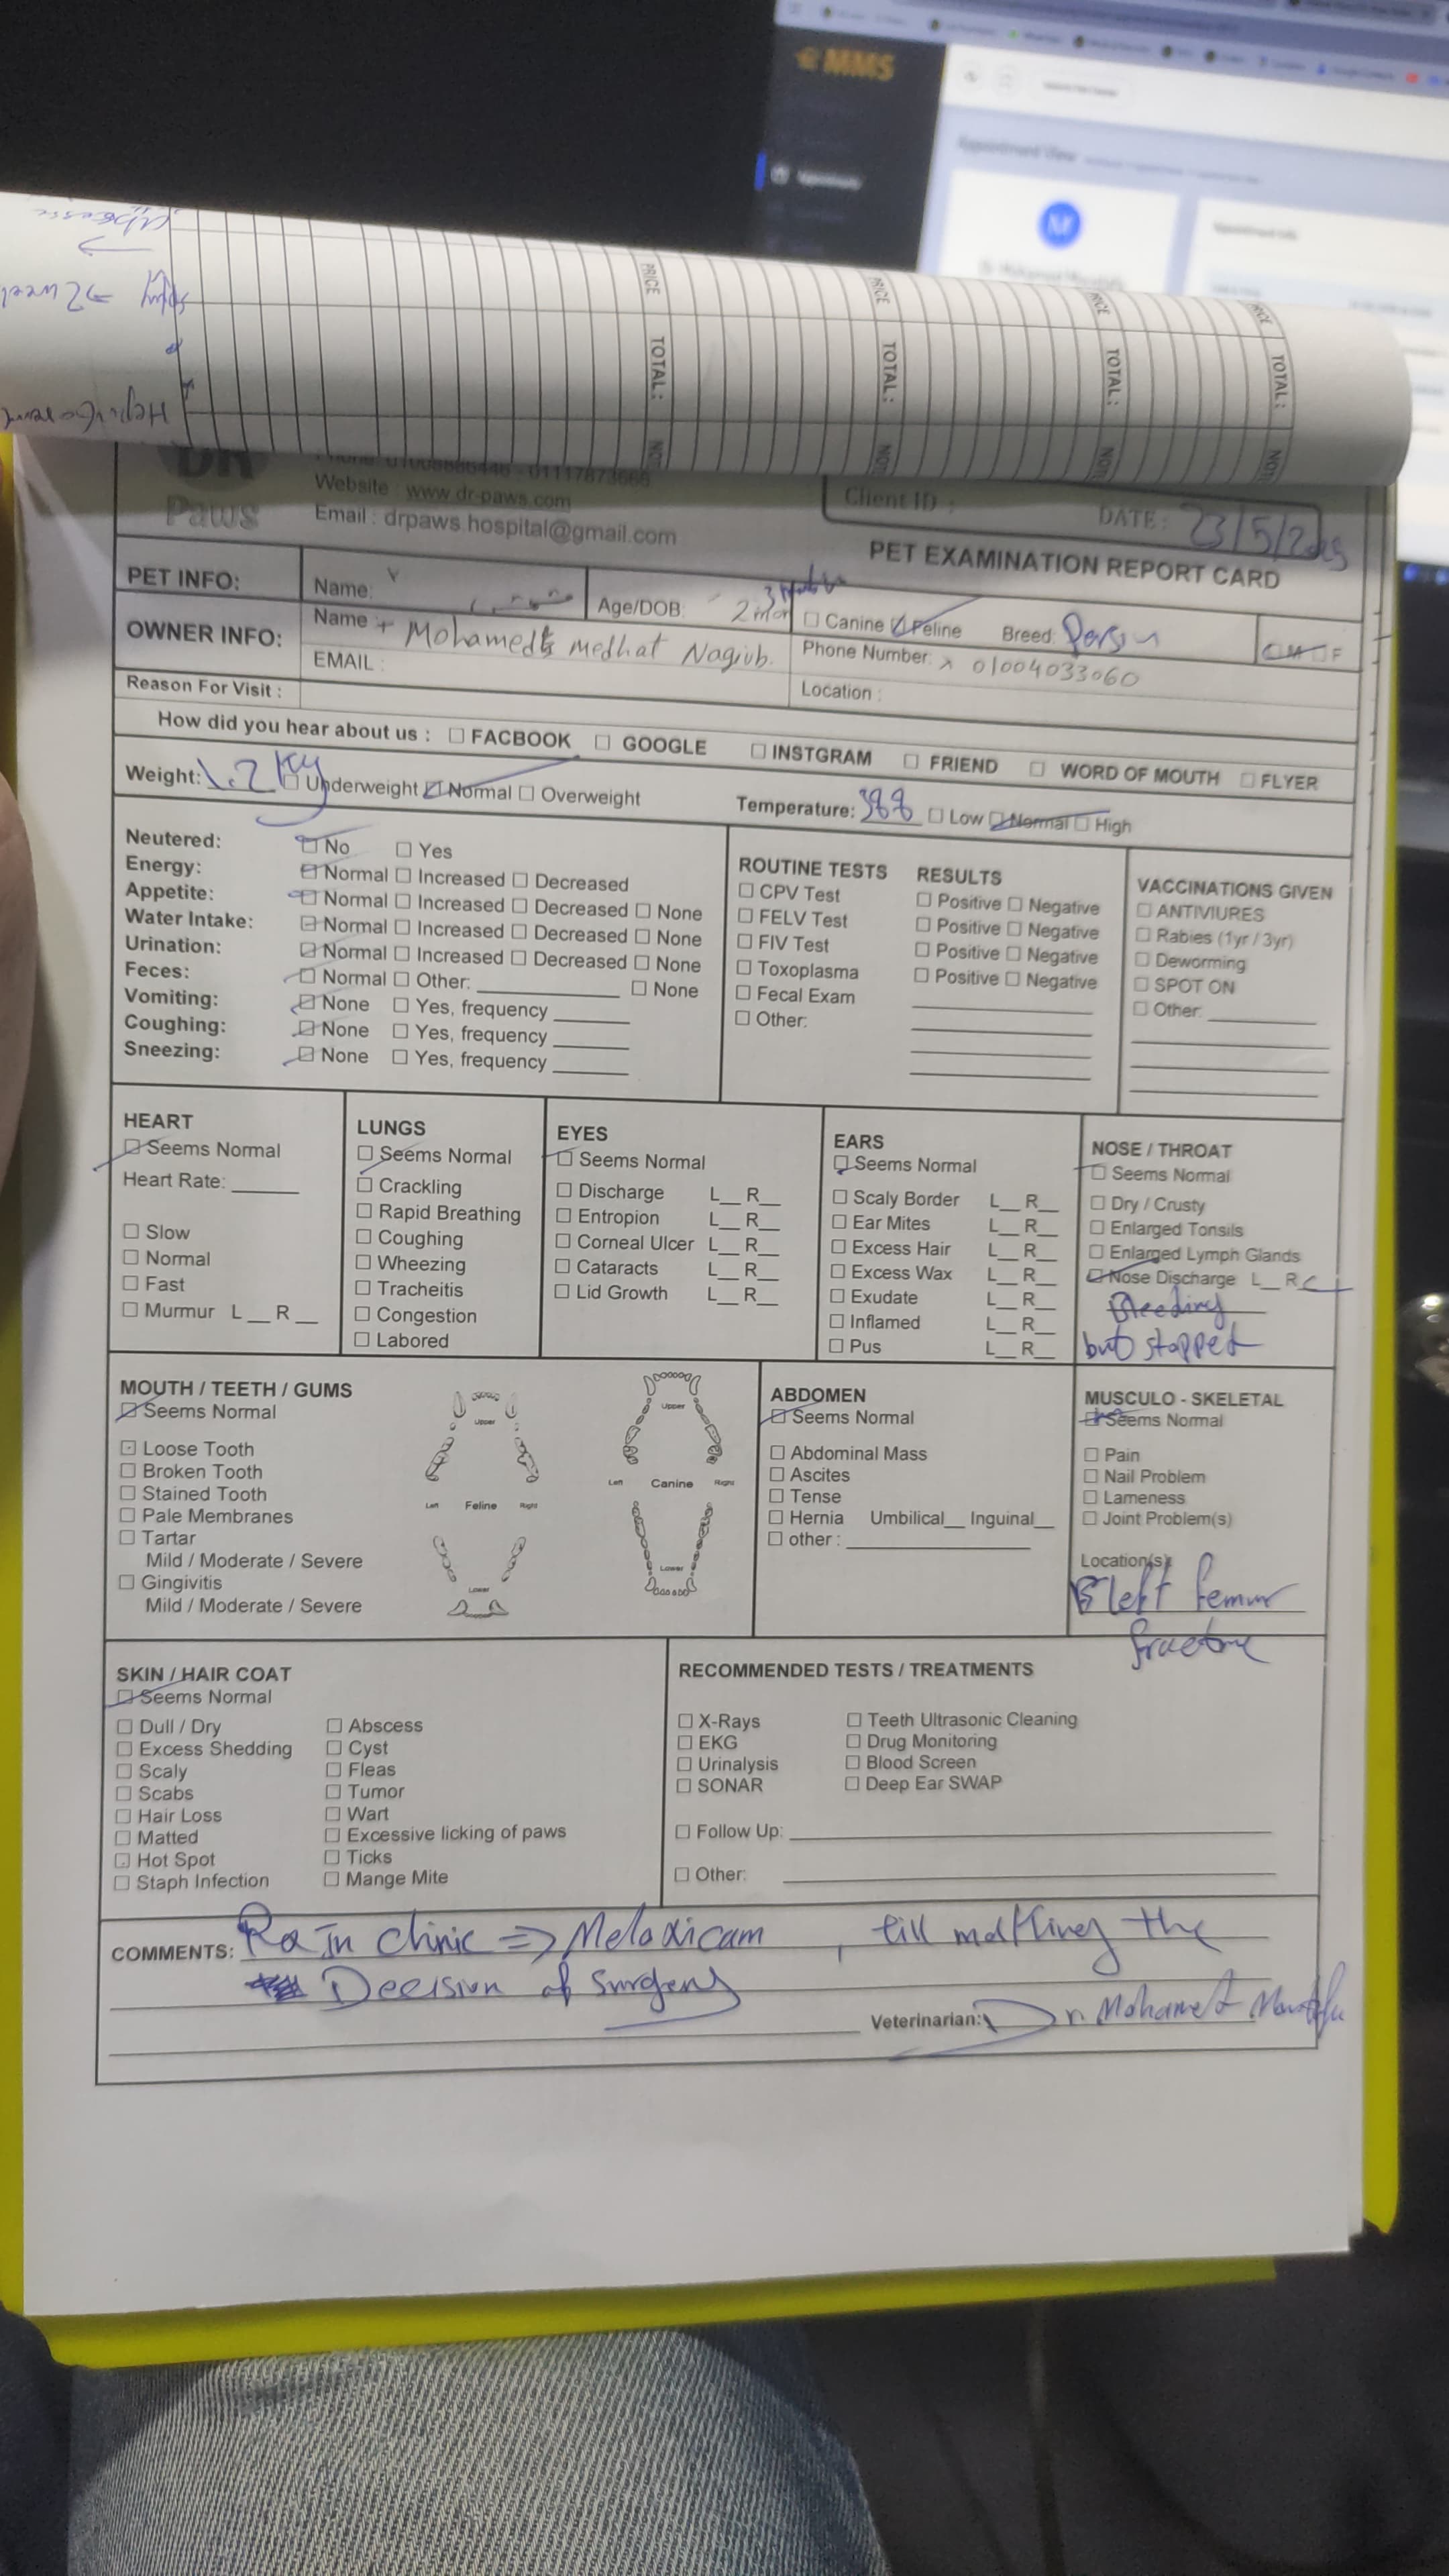 MMS
Appointment View
PRICE PRICE PRICE PRICE
TOTAL: TOTAL: TOTAL: TOTAL:
DR
Paws
Phone: 01008686446 - 01117873666
Website : www.dr-paws.com
Email : drpaws.hospital@gmail.com
Client ID :
DATE : 23/5/2025
PET EXAMINATION REPORT CARD
PET INFO:
Name:
Age/DOB:
☐ Canine ☑ Feline Breed: Persin
☐ M ☐ F
OWNER INFO:
Name Mohamed medhat Nagiub.
Phone Number: 01004033060
EMAIL :
Location :
Reason For Visit :
How did you hear about us : ☐ FACBOOK ☐ GOOGLE ☐ INSTGRAM ☐ FRIEND ☐ WORD OF MOUTH ☐ FLYER
Weight: 1.2 kg ☐ Underweight ☑ Normal ☐ Overweight
Temperature: 388 ☐ Low ☑ Normal ☐ High
Neutered: ☑ No ☐ Yes
Energy: ☑ Normal ☐ Increased ☐ Decreased
Appetite: ☑ Normal ☐ Increased ☐ Decreased ☐ None
Water Intake: ☑ Normal ☐ Increased ☐ Decreased ☐ None
Urination: ☑ Normal ☐ Increased ☐ Decreased ☐ None
Feces: ☑ Normal ☐ Other: ☐ None
Vomiting: ☑ None ☐ Yes, frequency
Coughing: ☑ None ☐ Yes, frequency
Sneezing: ☑ None ☐ Yes, frequency
ROUTINE TESTS RESULTS
☐ CPV Test ☐ Positive ☐ Negative
☐ FELV Test ☐ Positive ☐ Negative
☐ FIV Test ☐ Positive ☐ Negative
☐ Toxoplasma ☐ Positive ☐ Negative
☐ Fecal Exam
☐ Other:
VACCINATIONS GIVEN
☐ ANTIVIURES
☐ Rabies (1yr / 3yr)
☐ Deworming
☐ SPOT ON
☐ Other:
HEART
☑ Seems Normal
Heart Rate:
☐ Slow
☐ Normal
☐ Fast
☐ Murmur L__ R__
LUNGS
☑ Seems Normal
☐ Crackling
☐ Rapid Breathing
☐ Coughing
☐ Wheezing
☐ Tracheitis
☐ Congestion
☐ Labored
EYES
☑ Seems Normal
☐ Discharge L__ R__
☐ Entropion L__ R__
☐ Corneal Ulcer L__ R__
☐ Cataracts L__ R__
☐ Lid Growth L__ R__
EARS
☑ Seems Normal
☐ Scaly Border L__ R__
☐ Ear Mites L__ R__
☐ Excess Hair L__ R__
☐ Excess Wax L__ R__
☐ Exudate L__ R__
☐ Inflamed L__ R__
☐ Pus L__ R__
NOSE / THROAT
☑ Seems Normal
☐ Dry / Crusty
☐ Enlarged Tonsils
☐ Enlarged Lymph Glands
☑ Nose Discharge L__ R
Bleeding
but stopped
MOUTH / TEETH / GUMS
☑ Seems Normal
☐ Loose Tooth
☐ Broken Tooth
☐ Stained Tooth
☐ Pale Membranes
☐ Tartar
Mild / Moderate / Severe
☐ Gingivitis
Mild / Moderate / Severe
Upper
Left Feline Right
Lower
Upper
Left Canine Right
Lower
ABDOMEN
☑ Seems Normal
☐ Abdominal Mass
☐ Ascites
☐ Tense
☐ Hernia Umbilical__ Inguinal__
☐ other :
MUSCULO - SKELETAL
☐ Seems Normal
☐ Pain
☐ Nail Problem
☐ Lameness
☐ Joint Problem(s)
Location(s):
left femur
fracture
SKIN / HAIR COAT
☑ Seems Normal
☐ Dull / Dry
☐ Excess Shedding
☐ Scaly
☐ Scabs
☐ Hair Loss
☐ Matted
☐ Hot Spot
☐ Staph Infection
☐ Abscess
☐ Cyst
☐ Fleas
☐ Tumor
☐ Wart
☐ Excessive licking of paws
☐ Ticks
☐ Mange Mite
RECOMMENDED TESTS / TREATMENTS
☐ X-Rays
☐ EKG
☐ Urinalysis
☐ SONAR
☐ Teeth Ultrasonic Cleaning
☐ Drug Monitoring
☐ Blood Screen
☐ Deep Ear SWAP
☐ Follow Up:
☐ Other:
COMMENTS: In clinic => Meloxicam , till making the
Decision of surgery
Veterinarian: Dr. Mohamed